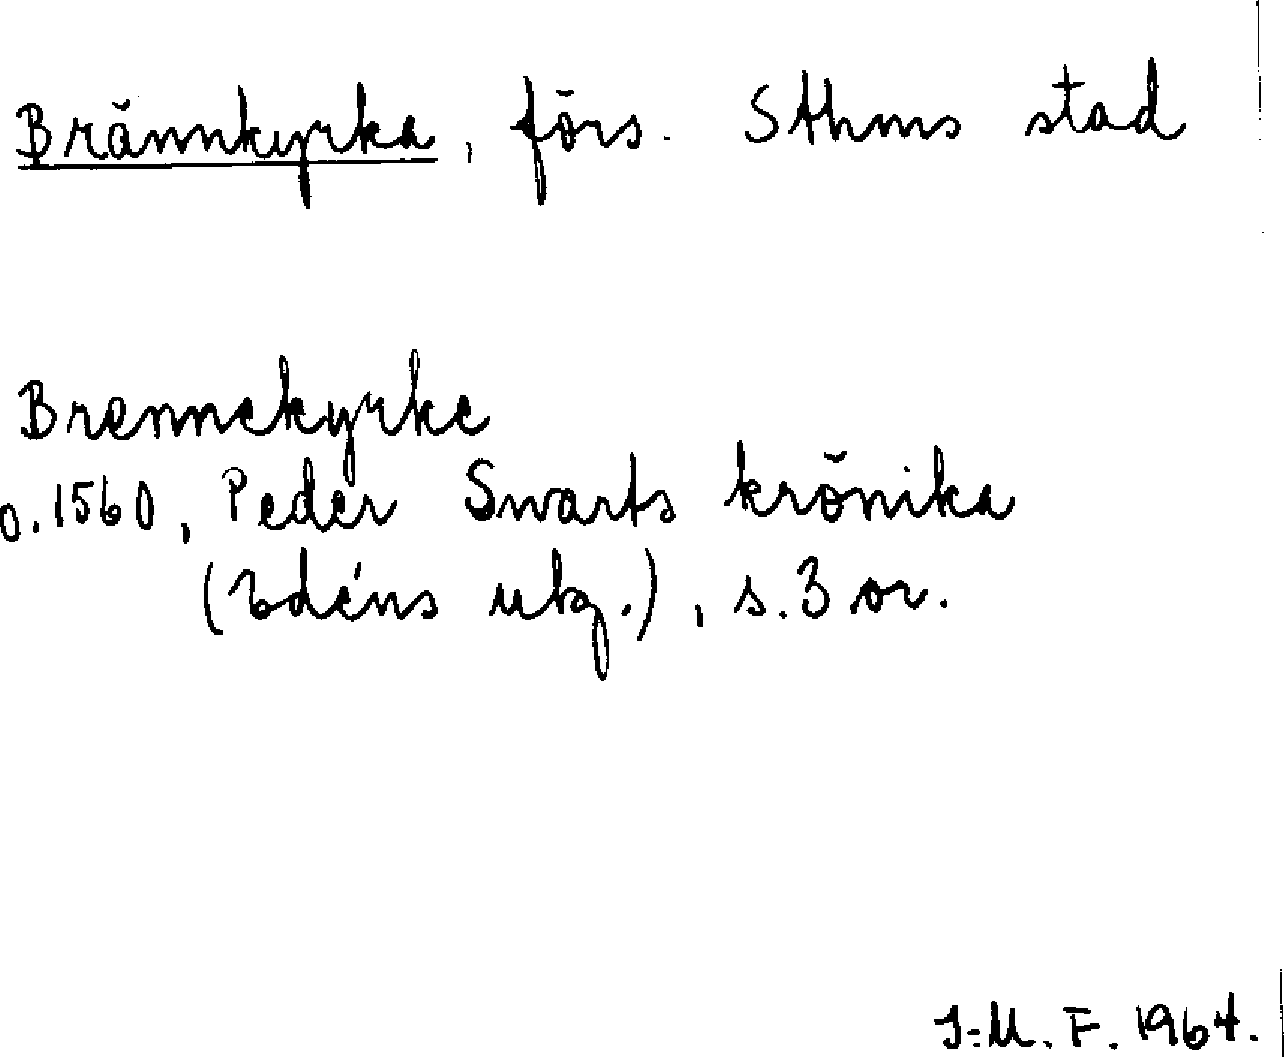 Brännkyrka, förs. Sthms stad
Brennekyrke
o. 1560, Peder Swarts krönika
(Edéns utg.), s. 3 or.
I-M. F. 1964.